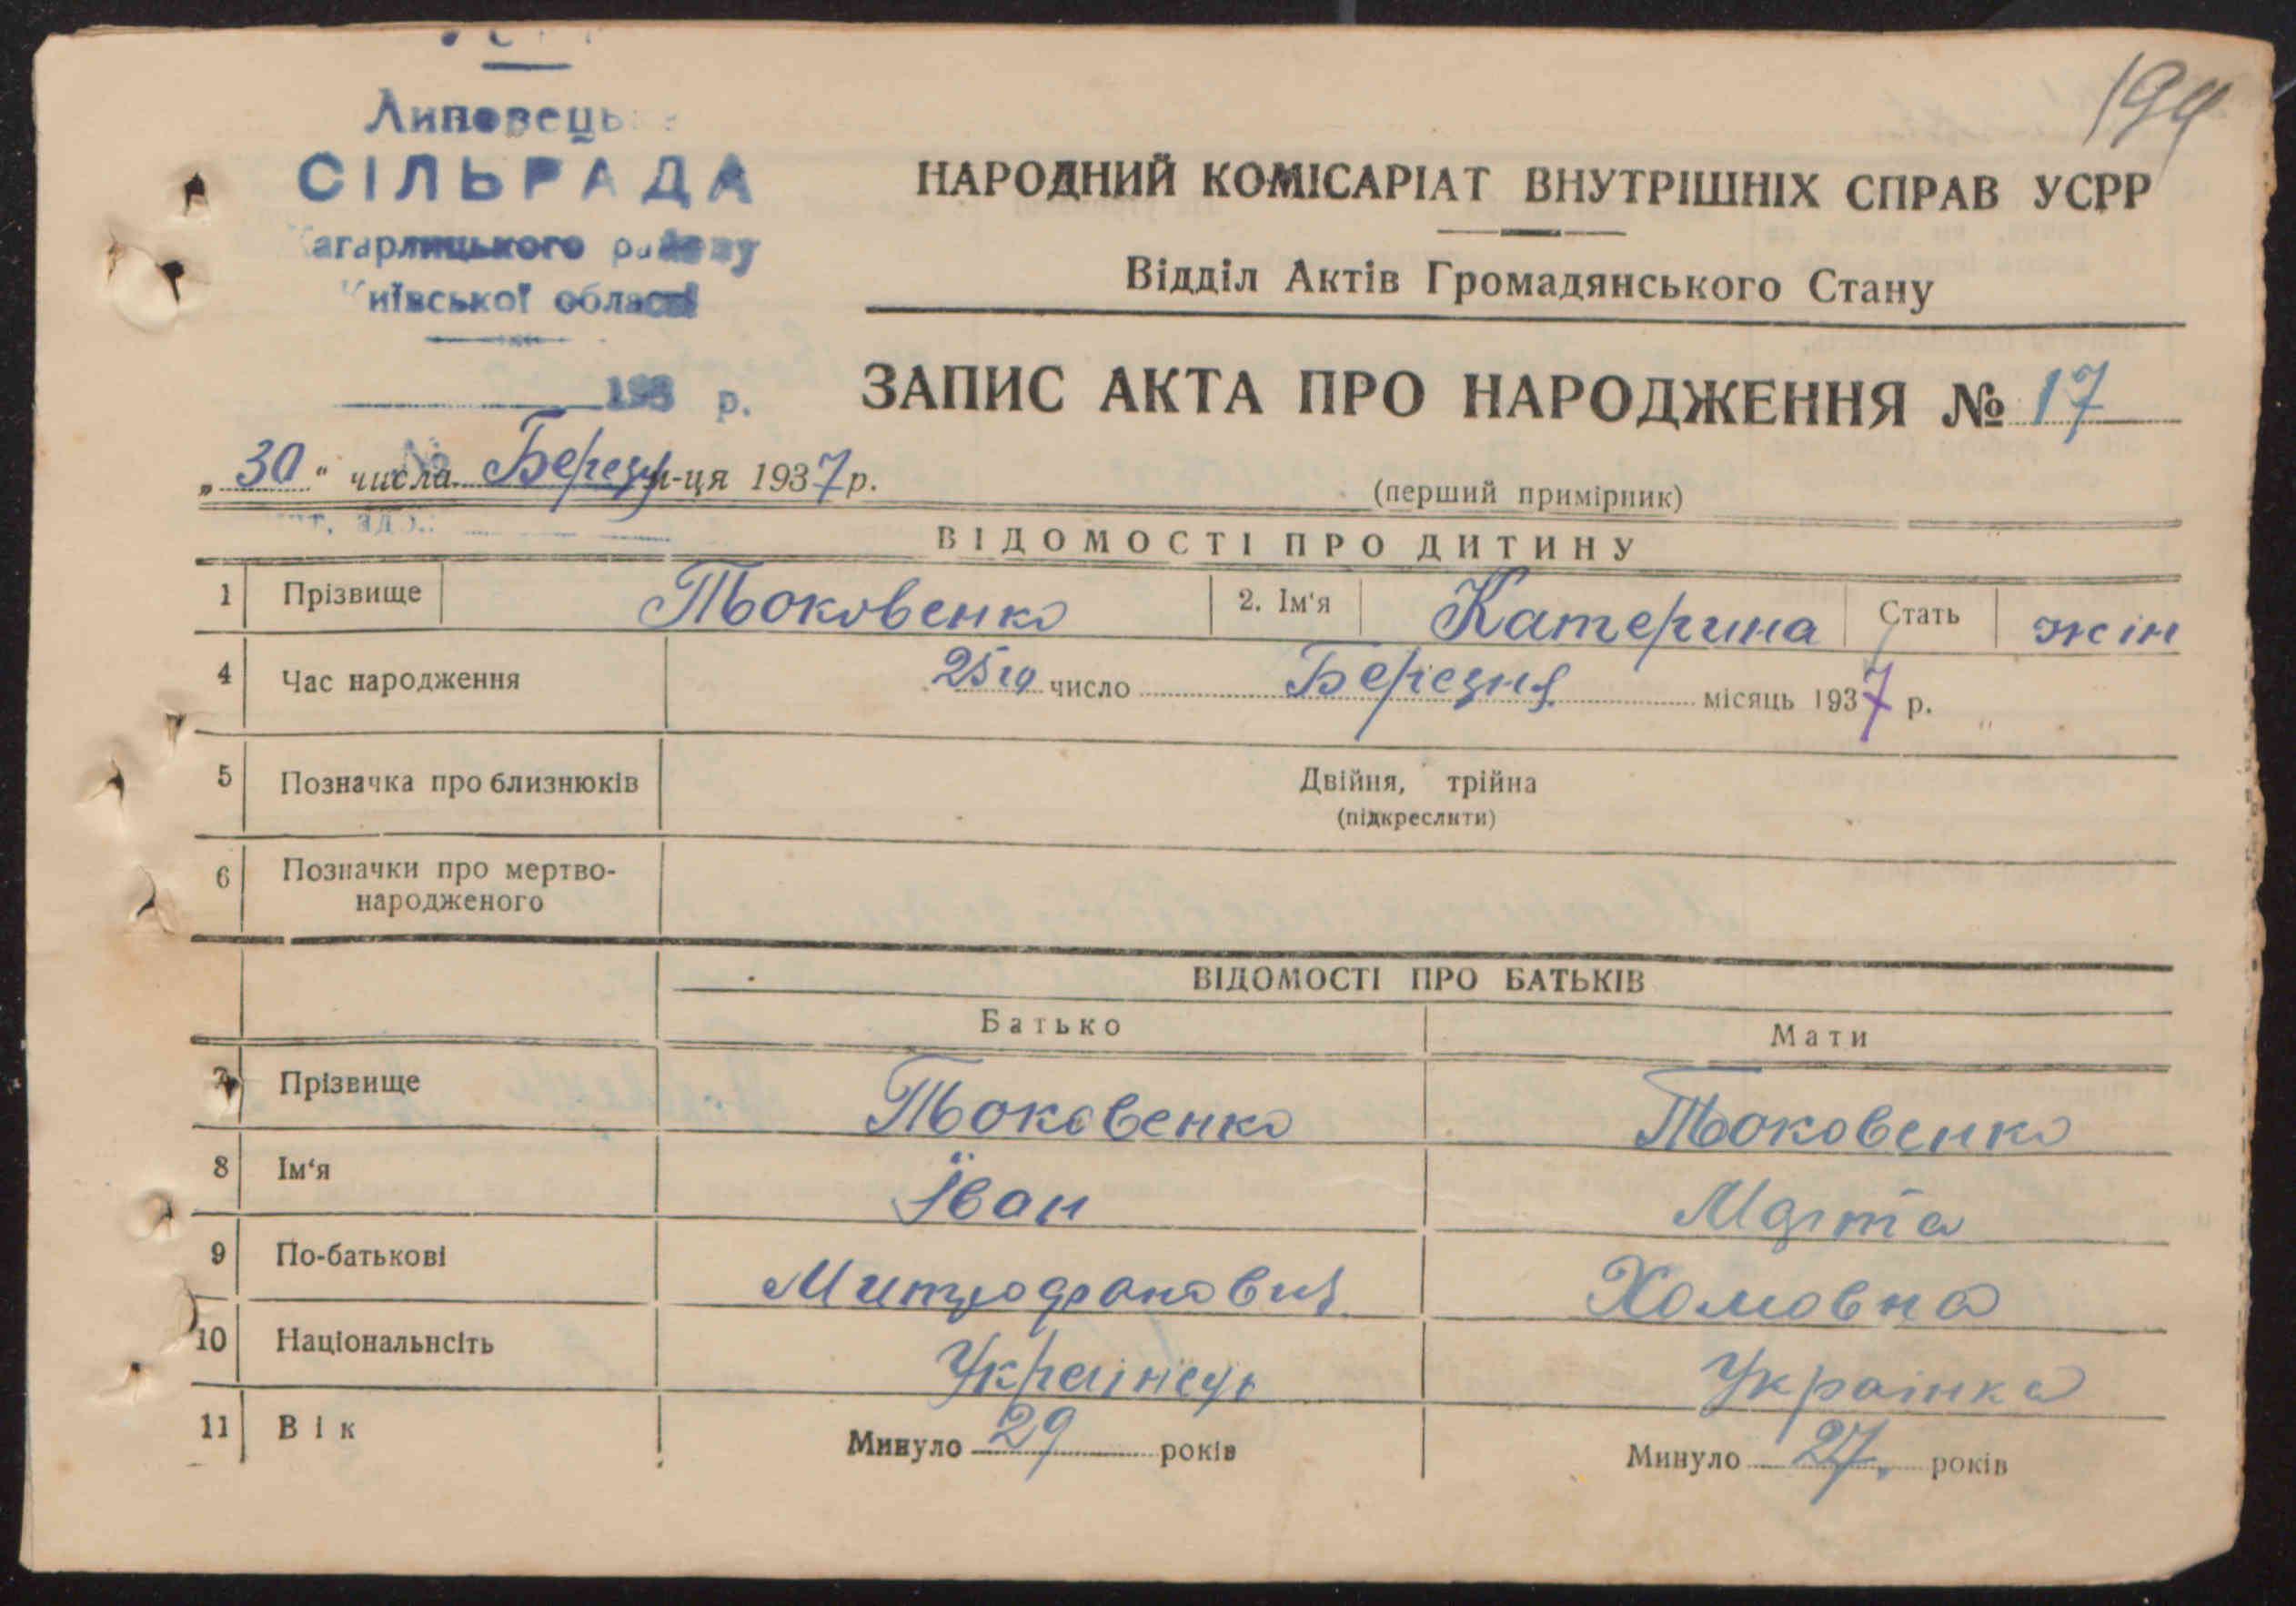 194
Липовецьк
СІЛЬРАДА
Кагарлицького району
Київської області
193 р.
№
НАРОДНИЙ КОМІСАРІАТ ВНУТРІШНІХ СПРАВ УСРР
Відділ Актів Громадянського Стану
ЗАПИС АКТА ПРО НАРОДЖЕННЯ № 17
„30“ числа Березн м-ця 1937 р.
(перший примірник)
ВІДОМОСТІ ПРО ДИТИНУ
1 Прізвище Токовенко 2. Ім'я Катерина Стать жін
4 Час народження 25го число Березня місяць 1937 р.
5 Позначка про близнюків Двійня, трійна
(підкреслити)
6 Позначки про мертво-
народженого
ВІДОМОСТІ ПРО БАТЬКІВ
Батько Мати
7 Прізвище Токовенко Токовенко
8 Ім'я Іван Марта
9 По-батькові Митрофанович Хомовна
10 Національнсіть Українець Украінка
11 Вік Минуло 29 років Минуло 27. років